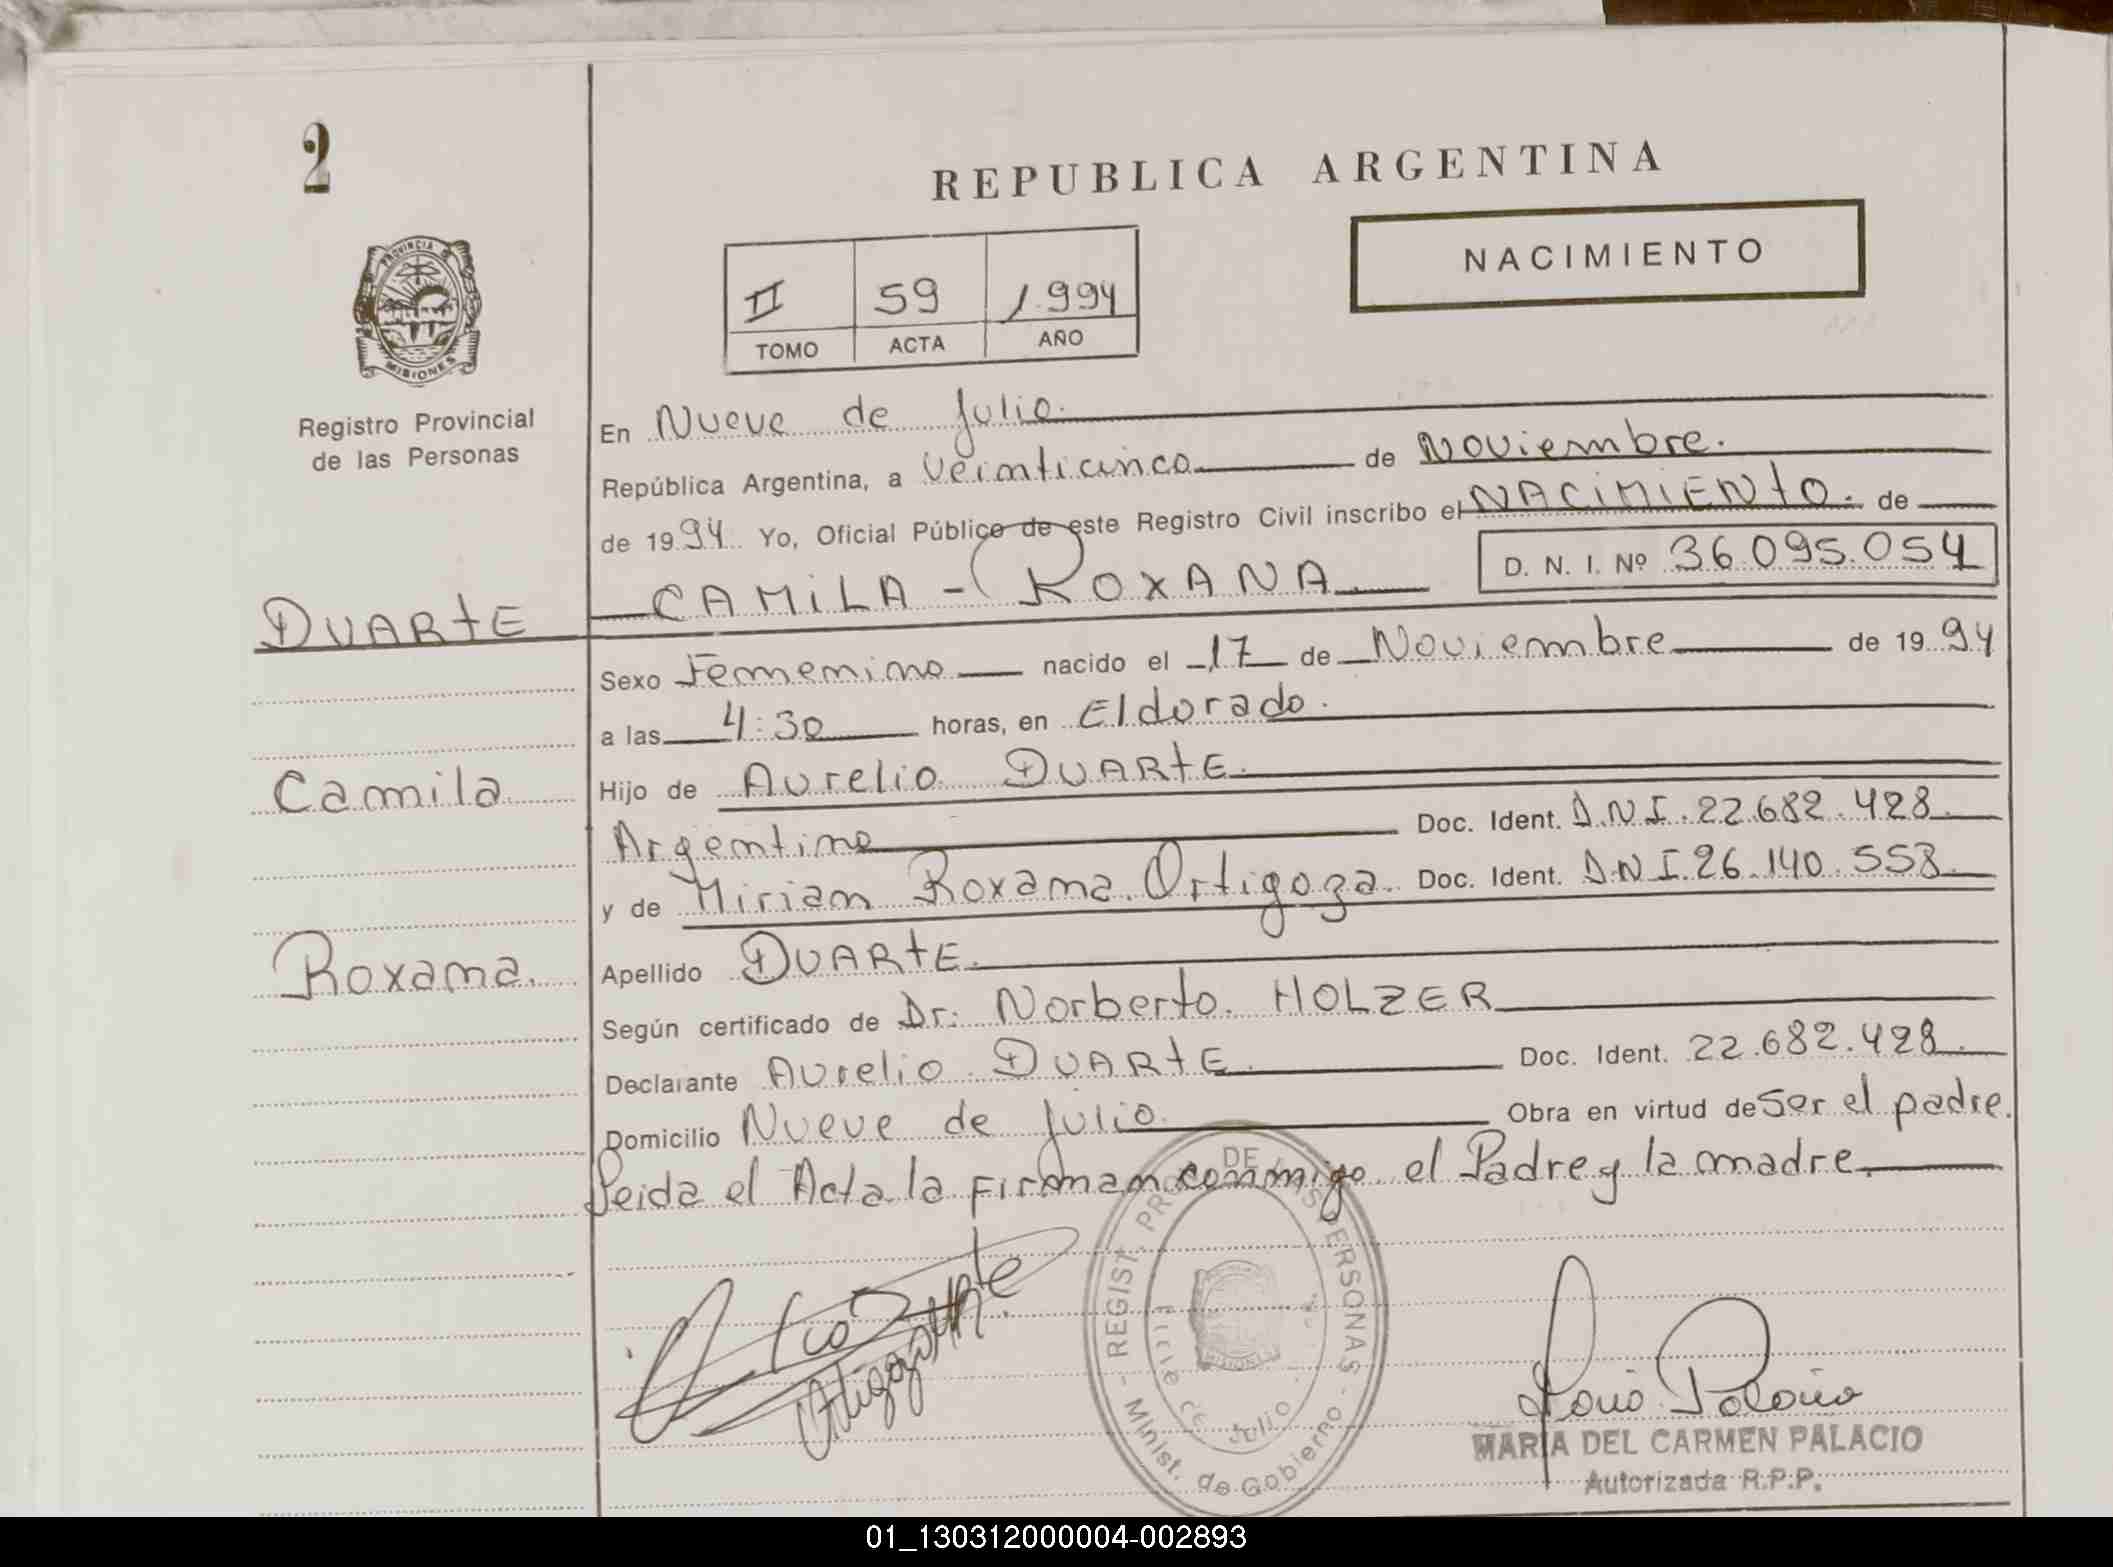 2
REPUBLICA ARGENTINA
NACIMIENTO
II 59 1.994
TOMO ACTA AÑO
PROVINCIA
MISIONES
Registro Provincial
de las Personas
En Nueve de Julio.
República Argentina, a veinticinco de Noviembre.
de 1994 Yo, Oficial Público de este Registro Civil inscribo el NACIMIENTO. de
CAMILA - ROXANA D. N. I. Nº 36.095.054
DUARTE
Sexo Femenino nacido el 17 de Noviembre de 1994
a las 4:30 horas, en Eldorado.
Camila
Hijo de Aurelio DUARTE.
Argentino Doc. Ident. D.N.I. 22.682.428.
y de Miriam Roxana Ortigoza. Doc. Ident. D.N.I. 26.140.558.
Roxana.
Apellido DUARTE.
Según certificado de Dr: Norberto. HOLZER
Declarante Aurelio DUARTE. Doc. Ident. 22.682.428.
Domicilio Nueve de Julio. Obra en virtud de ser el padre.
Leida el Acta la Firman conmigo el Padre y la madre.
REGIST. PROV. DE LAS PERSONAS
MISIONES
Julio
Minist. de Gobierno
MARIA DEL CARMEN PALACIO
Autorizada R.P.P.
01_130312000004-002893